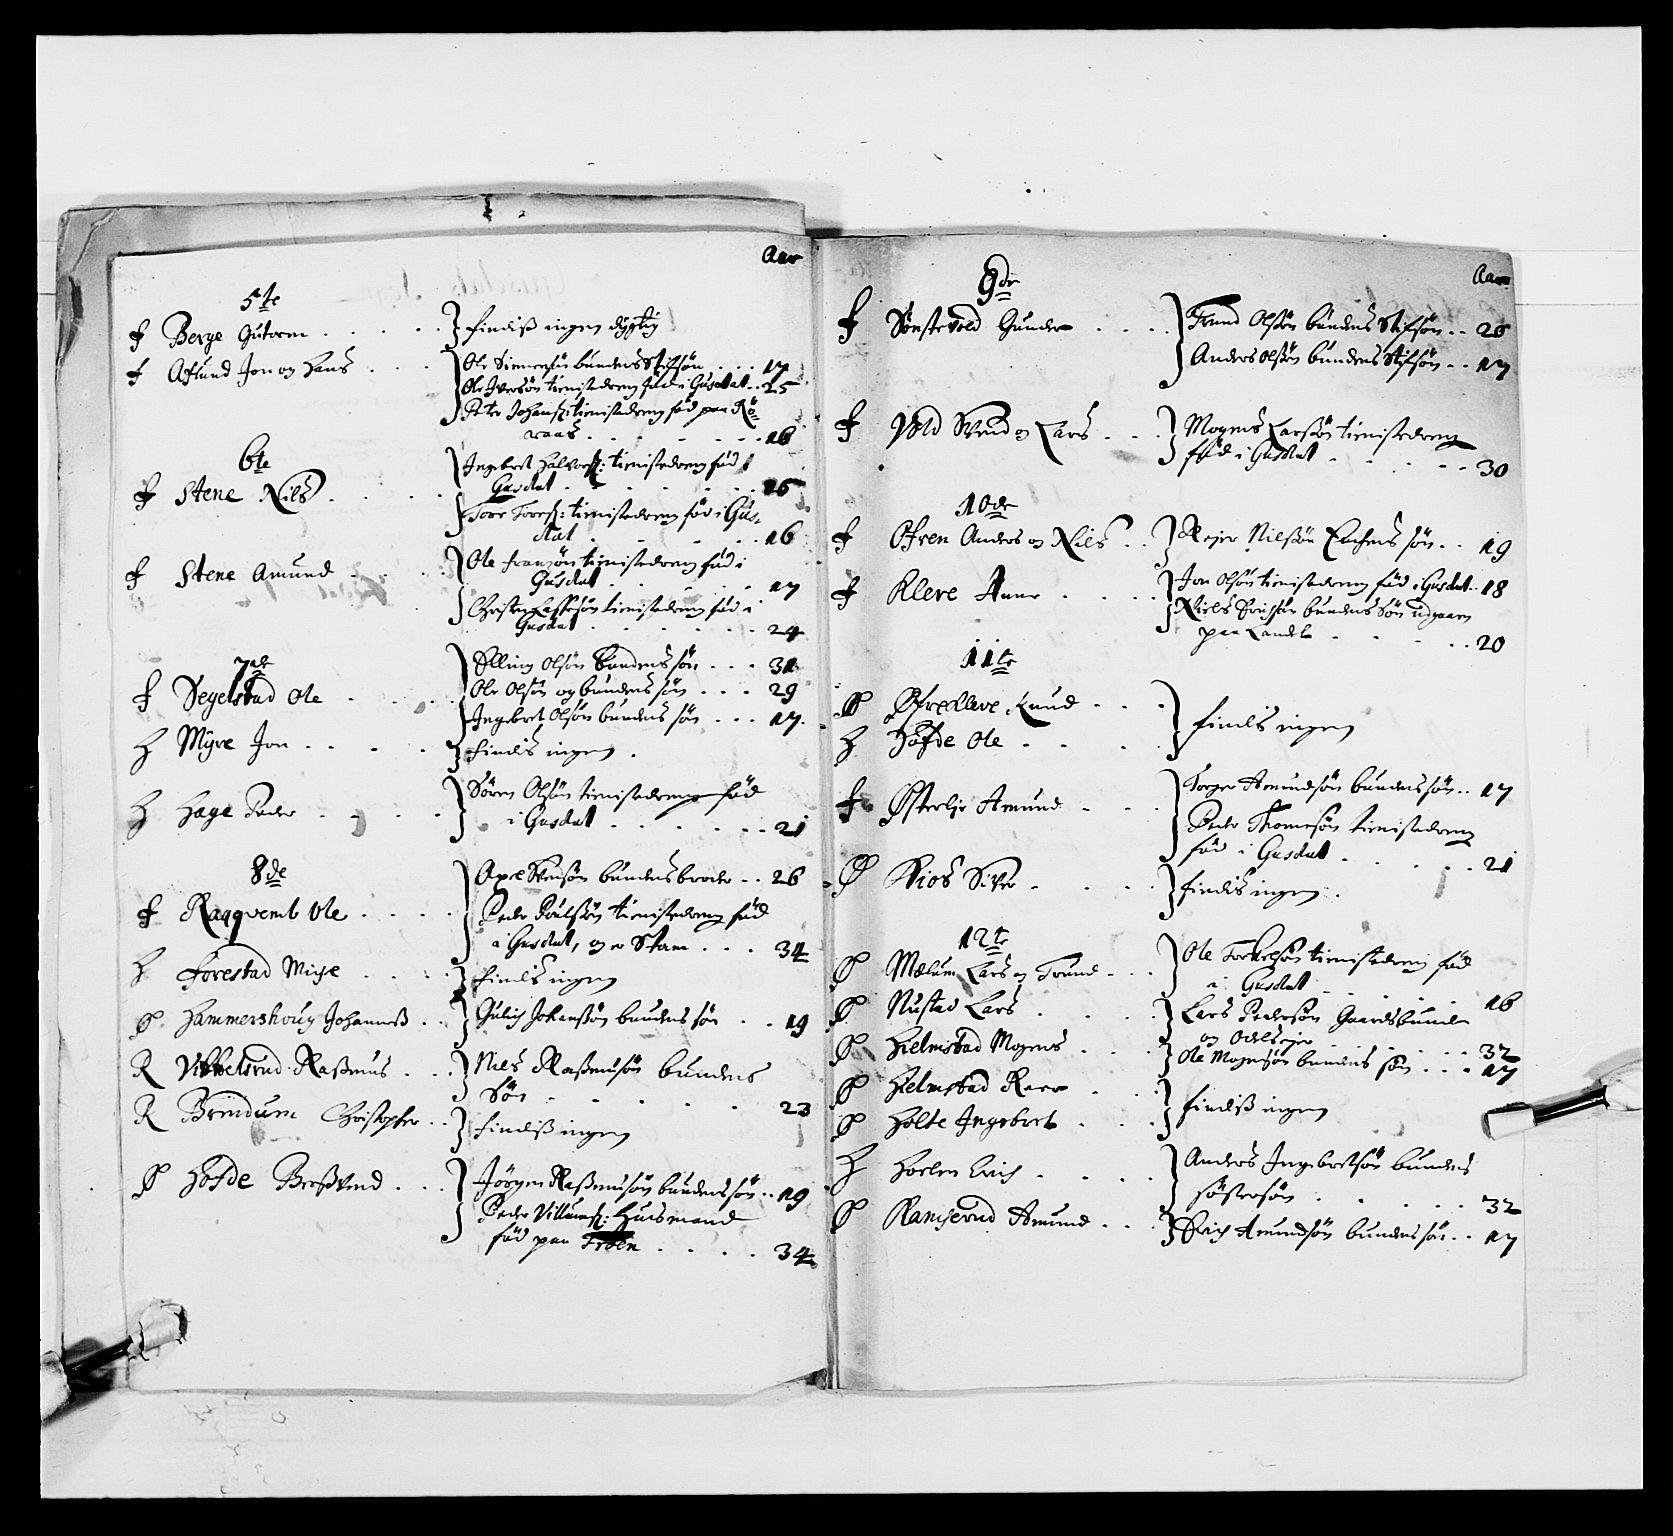 Aar
5te
f Berge Gutorm . . . . . } findiß ingen dygtig
f Aslund Jon og Hans . . . } Ole Simensøn bundens Stifsøn . . . 17
Ole Iversøn tienistedreng fød i Gusdal . . 25
Peter Johanß: tienistedreng fød paa Rø
raas . . . . . . . 18
6te
f Stene Nils . . . . } Ingebret Halvorß: tienistedreng fød i
Gusdal . . . . . . 25
Tore Toreß: tienistedreng fød i Gus,
dal . . . . . . 16
f Stene Amund . . . . } Ole Franzøn tienistedreng fød i
Gusdal . . . . . . 17
Christen tienistedreng fød i
Gusdal . . . . . . 24
7de
f Segelstad Ole . . . } Elling Olsøn bundens søn . . . 31
Ole Olsøn og bundens søn . . . 29
Ingebret Olsøn bundens søn . . . 17.
H Myre Jon . . . . } findis ingen .
H Hage Peder . . . . } Søren Olsøn tienistedreng fød
i Gusdal . . . . . . 21
8de
f Raaqvemb Ole . . . . } Axel Svensøn bundens broder . . 26
Peder Poulsøn tienistedreng fød
i Gusdal, og er Stam . . . 34
H Forestad . . . . } findis ingen
P. Hammershoug Johanneß . . } Gulich Johansøn bundens søn . . 19
R Vibbelsrud Raßmus . . . } Niels Raßmusøn bundens
Søn . . . . . . 23
R Brindum Christopher . . } findiß ingen
P Hofde Berßvend . . . } Jørgen Raßmusøn bundens søn . . 19
Peder Villumß: Huusmand
fød paa Froen . . . . 34
Aar
9de
f Sønstevold Gunder . . . . } Trund Olsøn bundens Stifsøn . . 20
Anders Olsøn bundens Stifsøn . . 17
f Vold Svend og Lars . . . } Mogens Larsøn tienistedreng
fød i Gusdal . . . . . . 30
10de
f Ofren Anders og Nils . . } Rejer Nilsøn søn . . 19
f Kleve . . . . . } Jon Olsøn tienistedreng fød i Gusdal . . 18
Niels bundens Søn udgaaen
paa Landet . . . . . . 20
11te
P Øfrekleve Knud . . . } findis ingen
H Hofde Ole . . . .
f Østerlie Amund . . . } Torger Amundsøn bundens søn . . 17
Peder Thomesøn tienistedreng
fød i Gusdal . . . . . . 21
P Kios Siver . . . . . } findis ingen .
12te
P Mælum Lars og Trund . . . } Ole Torkelsøn tienistedreng fød
i Gusdal . . . . . . 16
P Nustad Lars . . . . } Lars Pedersøn Gaardsbunde
og Odelsejer . . . . . . 32
P Hielmstad Mogens . . . . } Ole Mogensøn bundens søn . . . 17
P Hielmstad . . . } findiß ingen
P Holte Ingebret . . . .
H Horlen Erich . . . . } Anders Ingebretsøn bundens
søstersøn . . . . . . 32
P Ramserud Amund . . . } Erich Amundsøn bundens søn . . 17